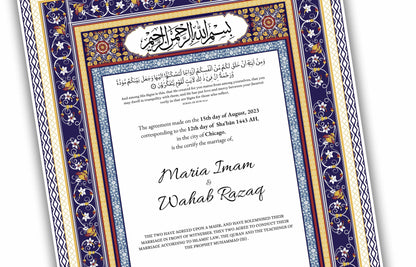 بسم الله الرحمن الرحيم
وَمِنْ آيَاتِهِ أَنْ خَلَقَ لَكُم مِّنْ أَنفُسِكُمْ أَزْوَاجًا لِّتَسْكُنُوا إِلَيْهَا وَجَعَلَ بَيْنَكُم مَّوَدَّةً
وَرَحْمَةً إِنَّ فِي ذَٰلِكَ لَآيَاتٍ لِّقَوْمٍ يَتَفَكَّرُونَ
And among His Signs is this, that He created for you mates from among yourselves, that you
may dwell in tranquility with them, and He has put love and mercy between your (hearts):
verily in that are Signs for those who reflect.
The agreement made on the 15th day of August, 2023
corresponding to the 12th day of Sha'bān 1443 AH,
in the city of Chicago,
is certify the marriage of,
Maria Imam
&
Wahab Razaq
THE TWO HAVE AGREED UPON A MAHR, AND HAVE SOLEMNISED THEIR
MARRIAGE IN FRONT OF WITNESSES. THEY TWO AGREE TO CONDUCT THEIR
MARRIAGE ACCORDING TO ISLAMIC LAW, THE QURAN AND THE TEACHINGS OF
THE PROPHET MUHAMMAD